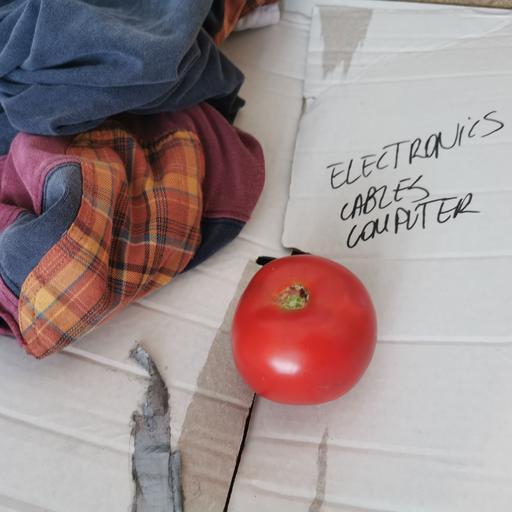 ELECTRONICS
CABLES
COMPUTER